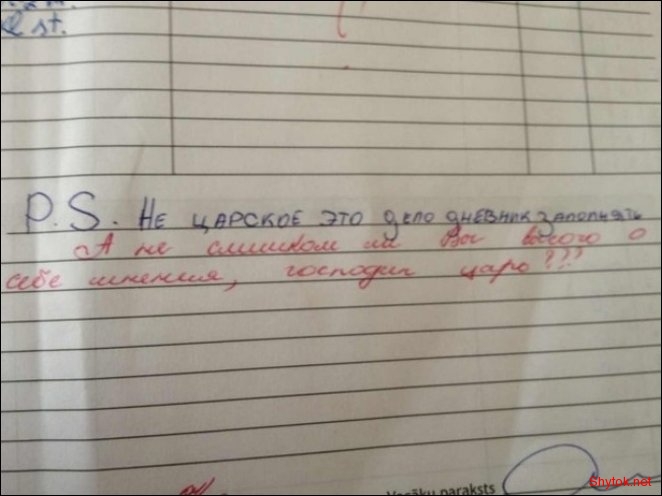 st.
P.S. НЕ ЦАРСКОЕ ЭТО ДЕЛО ДНЕВНИК ЗАПОЛНЯТЬ
А не слишком ли Вы высого о
себе мнения, господин царь???
Vecāku paraksts
Shytok.net